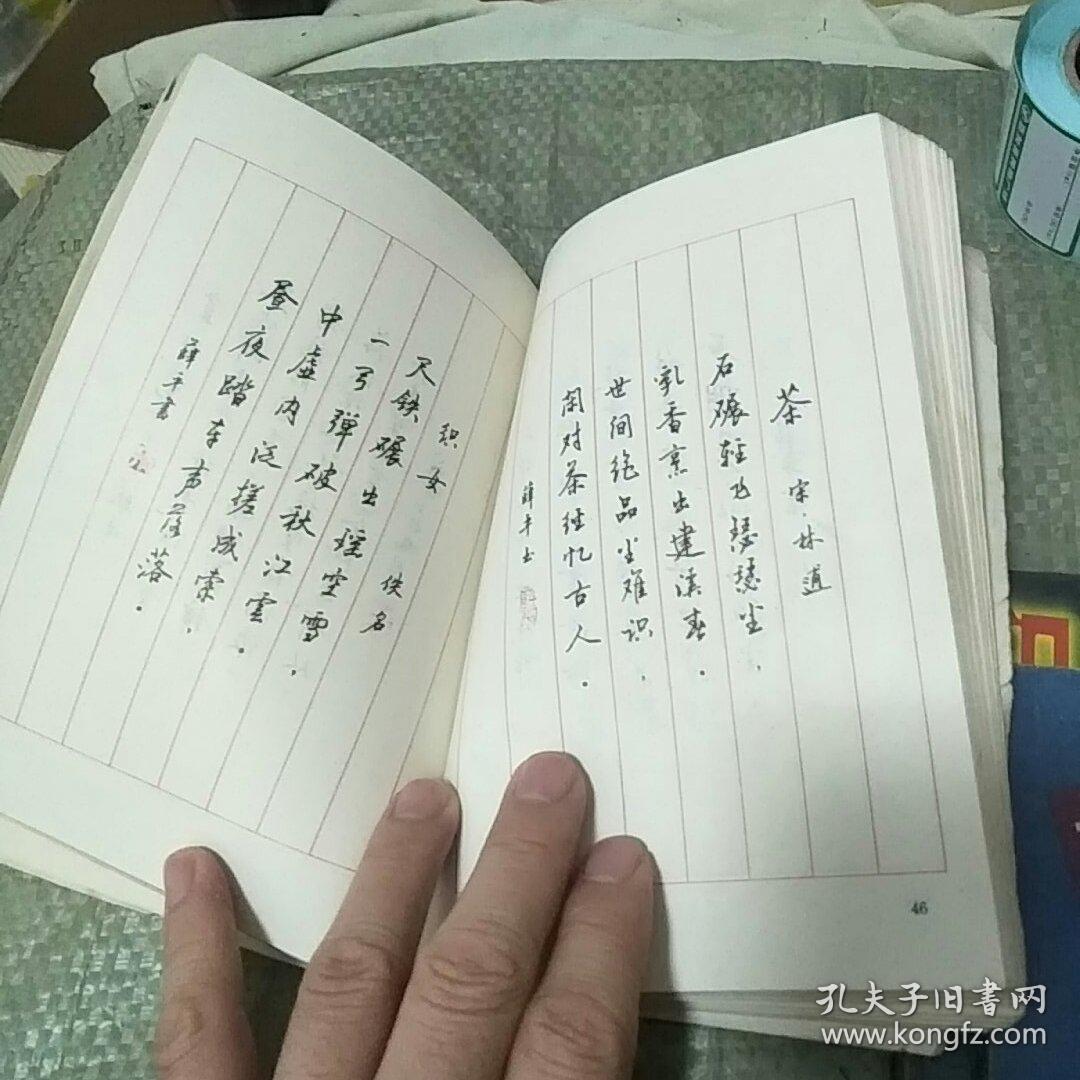 茶 宋·林逋
石碾轻飞瑟瑟尘，
乳香烹出建溪春．
世间绝品尘难识，
闲对茶经忆古人．
薛平书
46
织女 佚名
尺铁碾出瑶空雪，
一弓弹破秋江云．
中虚内泛搓成索，
昼夜踏车声落落．
薛平书
孔夫子旧书网
www.kongfz.com